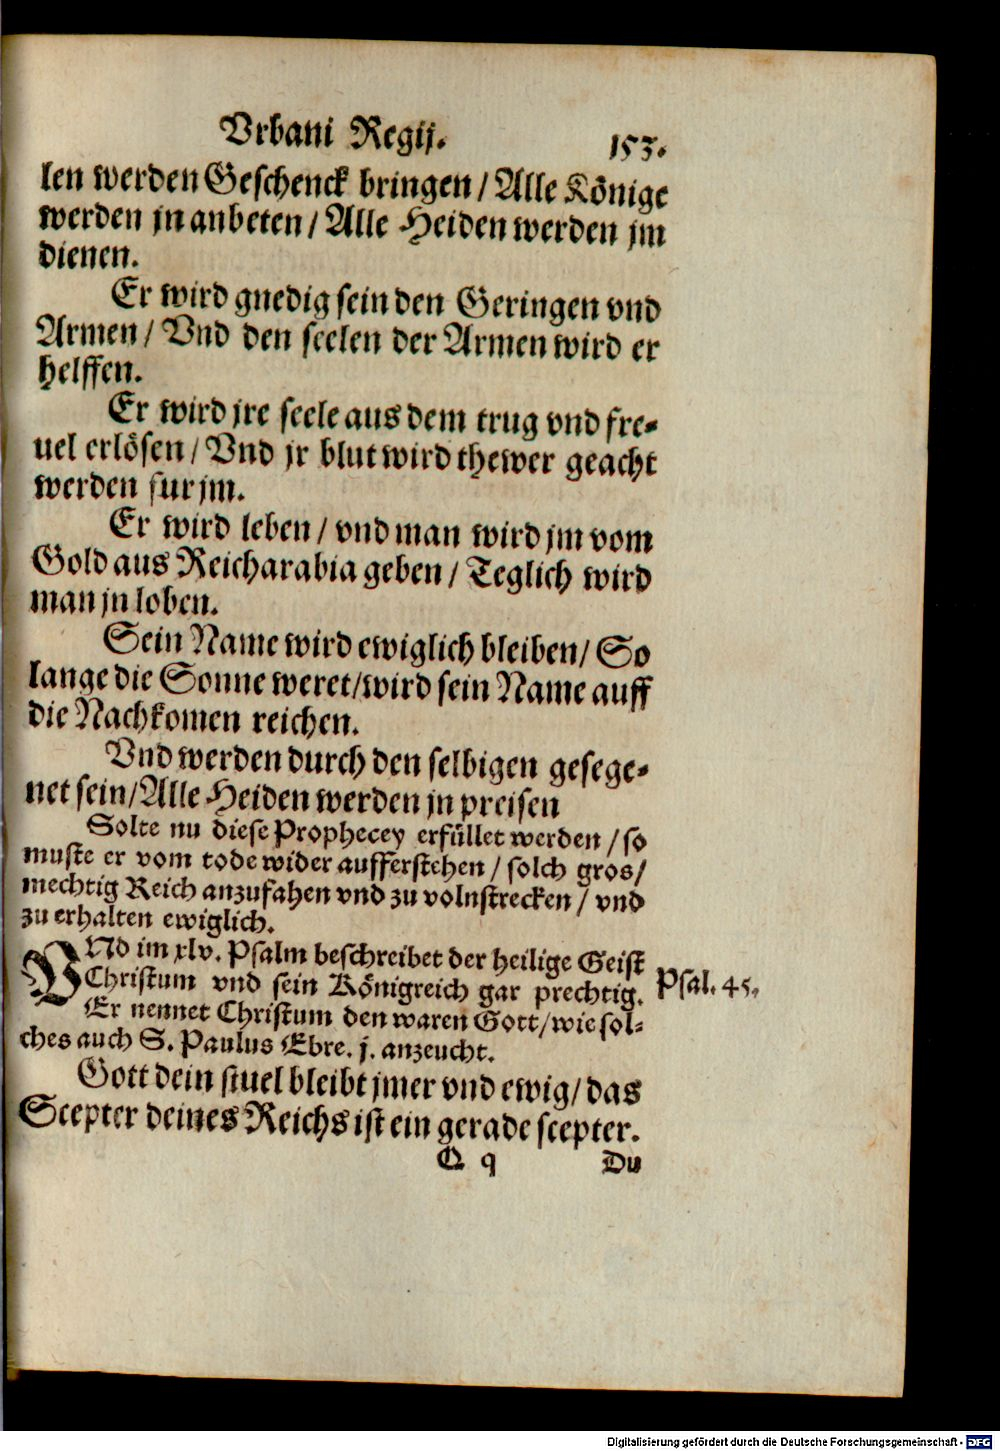 Vrbani Regij. 153.
len werden Geschenck bringen / Alle Könige
werden jn anbeten / Alle Heiden werden jm
dienen.
Er wird gnedig sein den Geringen vnd
Armen / Vnd den seelen der Armen wird er
helffen.
Er wird jre seele aus dem trug vnd fre-
uel erlösen / Vnd jr blut wird thewer geacht
werden fur jm.
Er wird leben / vnd man wird jm vom
Gold aus Reicharabia geben / Teglich wird
man jn loben.
Sein Name wird ewiglich bleiben / So
lange die Sonne weret / wird sein Name auff
die Nachkomen reichen.
Vnd werden durch den selbigen gesege-
net sein / Alle Heiden werden jn preisen
Solte nu diese Prophecey erfüllet werden / so
muste er vom tode wider aufferstehen / solch gros /
mechtig Reich anzufahen vnd zu volnstrecken / vnd
zu erhalten ewiglich.
VNd im xlv. Psalm beschreibet der heilige Geist
Christum vnd sein Königreich gar prechtig. Psal. 45.
Er nennet Christum den waren Gott / wie sol-
ches auch S. Paulus Ebre. j. anzeucht.
Gott dein stuel bleibt jmer vnd ewig / das
Scepter deines Reichs ist ein gerade scepter.
Q q Du
Digitalisierung gefördert durch die Deutsche Forschungsgemeinschaft - DFG